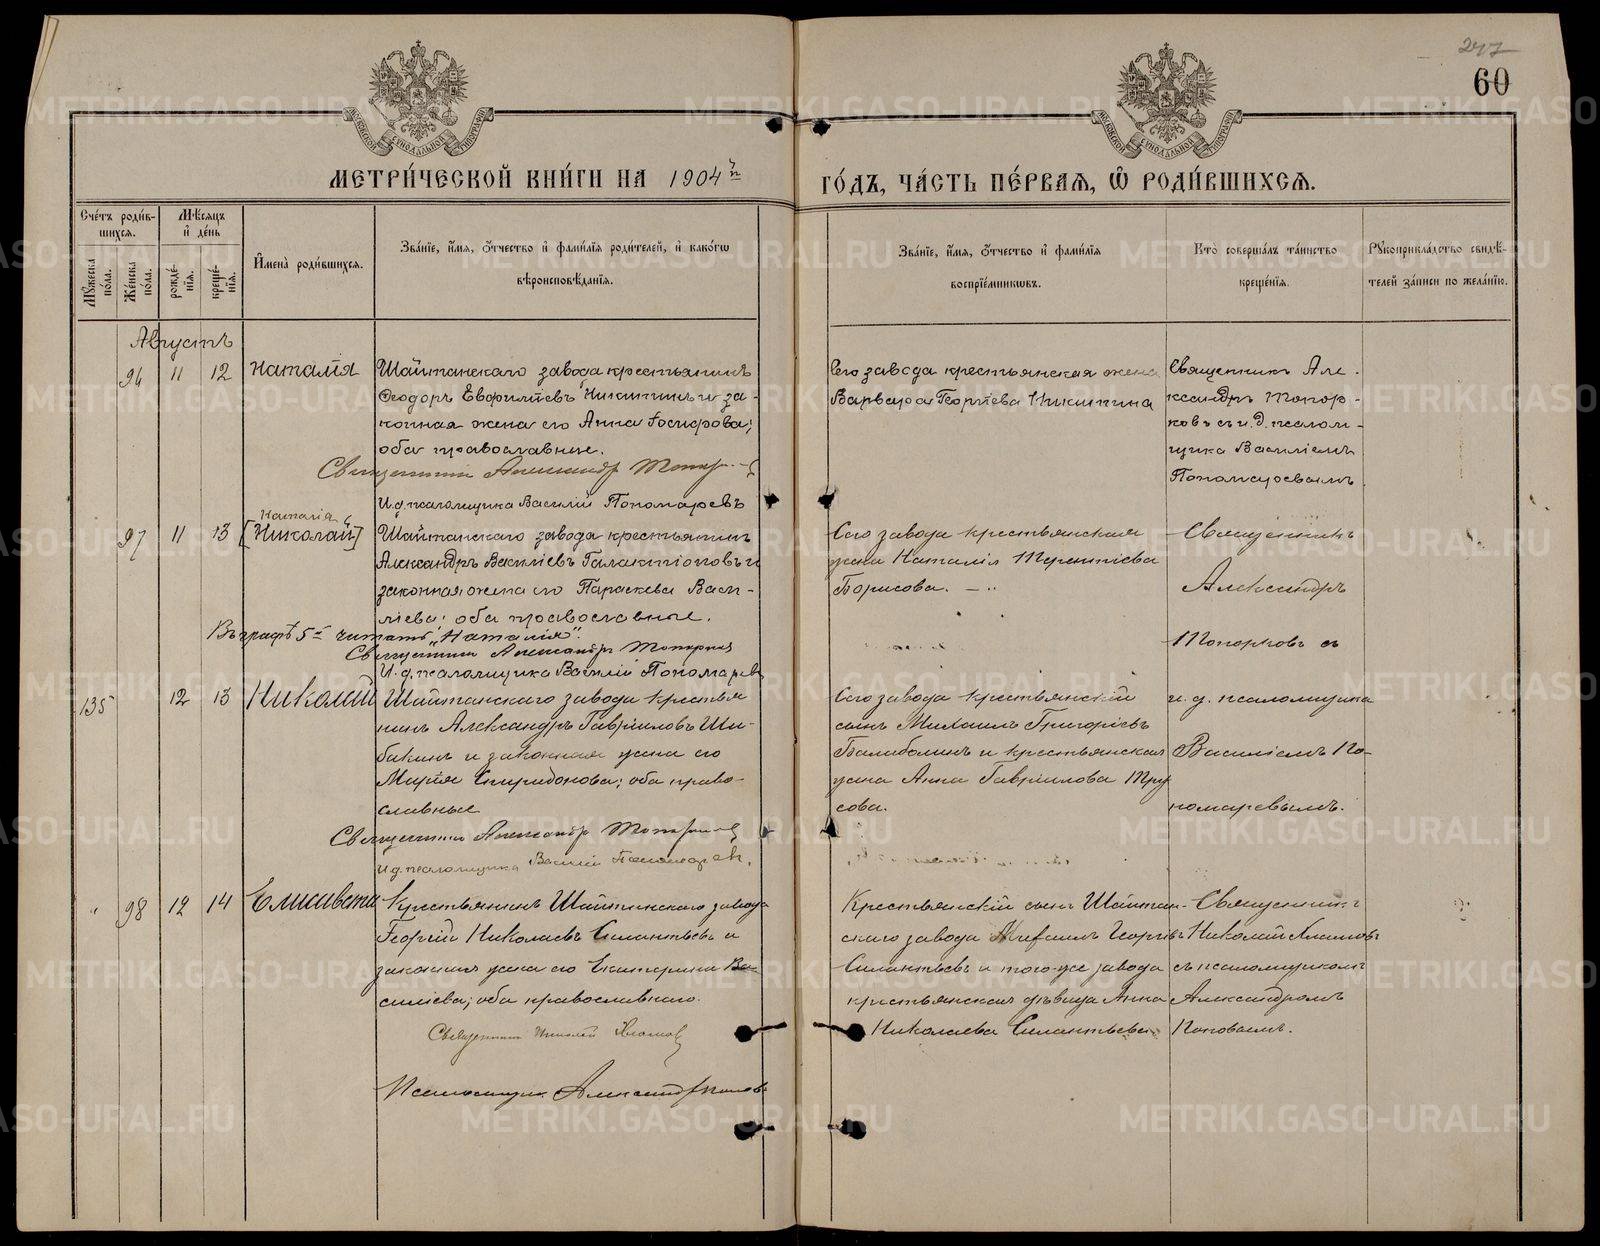 247
60
МЕТРИ́ЧЕСКОЙ КНИ́ГИ НА 1904 й
ГО́ДЪ, ЧА́СТЬ ПЕ́РВАѦ, Ѽ РОДИ́ВШИХСѦ.
Сче́тъ роди́в-
шихсѧ.
Мꙋ́жеска по́ла.
Же́нска по́ла.
Мѣ́сяцъ и҆ де́нь
рожде́-
нїѧ.
креще́-
нїѧ.
И҆мена̀ роди́вшихсѧ.
Зва́нїе, и҆́мѧ, ѻ҆́тчество и҆ фами́лїѧ роди́телей, и҆ како́гѡ
вѣроисповѣ́данїѧ.
Зва́нїе, и҆́мѧ, ѻ҆́тчество и҆ фами́лїѧ
воспрїе́мникѡвъ.
Кто̀ соверша́лъ та́инство
креще́нїѧ.
Рꙋкоприкла́дство свидѣ́-
телей за́писи по жела́нїю.
Августъ
94 11 12 Наталія
Шайтанскаго завода крестьянинъ
Ѳеодоръ Никитинъ и за-
конная жена его Анна
оба православные.
Священникъ Александр Топорков
И.д. псаломщика Василій Пономаревъ
Сего завода крестьянская жена
Варвара Георгіева Никитина
Священникъ Але-
ксандръ Топор-
ковъ съ и.д. псалом-
щика Василіемъ
Пономаревымъ.
Наталія
97 11 13 [Николай]
Шайтанскаго завода крестьянинъ
Александръ Василіевъ Галактіоновъ и
законная жена его Параскева Васи-
ліева; оба православные.
Въ графѣ 5й читать „Наталія".
Священникъ Александръ Топорков
И.д. псаломщика Василій Пономарев
Сего завода крестьянская
жена Наталія Терентіева
Борисова.
Священникъ
Александръ
Топорковъ съ
135 12 13 Николай
Шайтанскаго завода крестья
нинъ Александръ Гавріиловъ Ши-
бакинъ и законная жена его
Марія Спиридонова; оба право-
славные
Священникъ Александр Топорков
И.д. псаломщика Василій Пономарев.
Сего завода крестьянскій
сынъ Михаилъ Григорьевъ
Балабалинъ и крестьянская
жена Анна Гавріилова Тру
сова.
и.д. псаломщика
Василіемъ По-
номаревымъ.
" 98 12 14 Елисавета
Крестьянинъ Шайтанскаго завода
Георгій Николаевъ Силантьевъ и
законная жена его Екатерина Ва-
силіева; оба православнаго.
Священник Николай Хламов
Псаломщик Александр Попов
Крестьянскій сынъ Шайтан-
скаго завода Михаилъ Георгіевъ
Силантьевъ и того-же завода
крестьянская дѣвица Анна
Николаева Силантьева
Священникъ
Николай Хламовъ
съ псаломщикомъ
Александромъ
Поповымъ.
METRIKI.GASO-URAL.RU